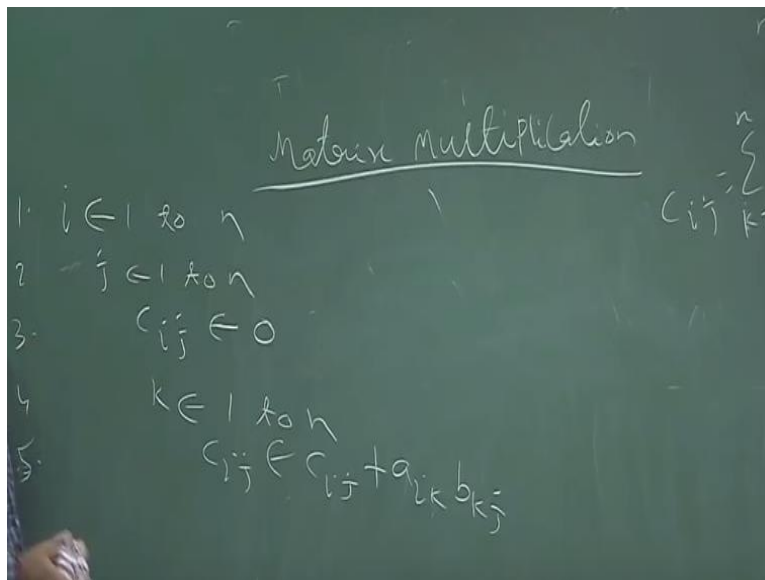 Matrix Multiplication
n
Cij = Σ
k=
1. i ← 1 to n
2 j ← 1 to n
3. Cij ← 0
4 k ← 1 to n
5. Cij ← Cij + aik bkj